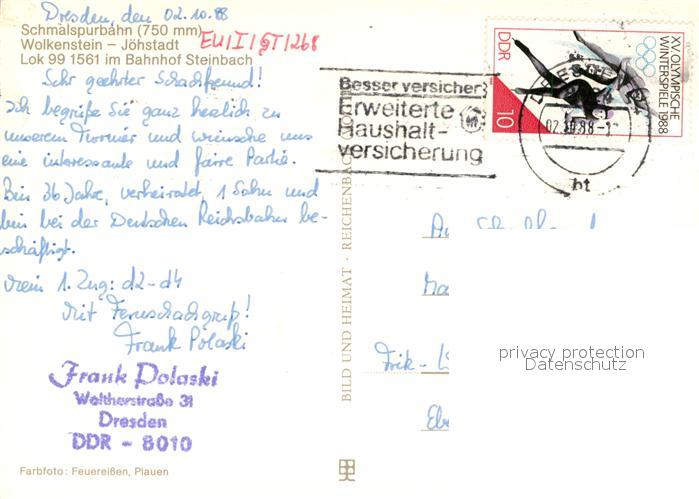 Dresden, den 02.10.88
Schmalspurbahn (750 mm)
Wolkenstein – Jöhstadt
Lok 99 1561 im Bahnhof Steinbach
EU/I/gT/268
Sehr geehrter Schachfreund!
Ich begrüße Sie ganz herzlich zu
unserem Turnier und wünsche uns
eine interessante und faire Partie.
Bin 36 Jahre, verheiratet, 1 Sohn und
bin bei der Deutschen Reichsbahn be-
schäftigt.
mein 1. Zug: d2-d4
Mit Fernschachgruß!
Frank Polaski
Frank Polaski
Waltherstraße 31
Dresden
DDR - 8010
Farbfoto: Feuereißen, Plauen
BILD UND HEIMAT · REICHENBACH
Besser versichert
Erweiterte
Haushalt-
versicherung
DDR
10
XV. OLYMPISCHE
WINTERSPIELE 1988
DRESDEN
02.10.88
bt
Frik-
privacy protection
Datenschutz